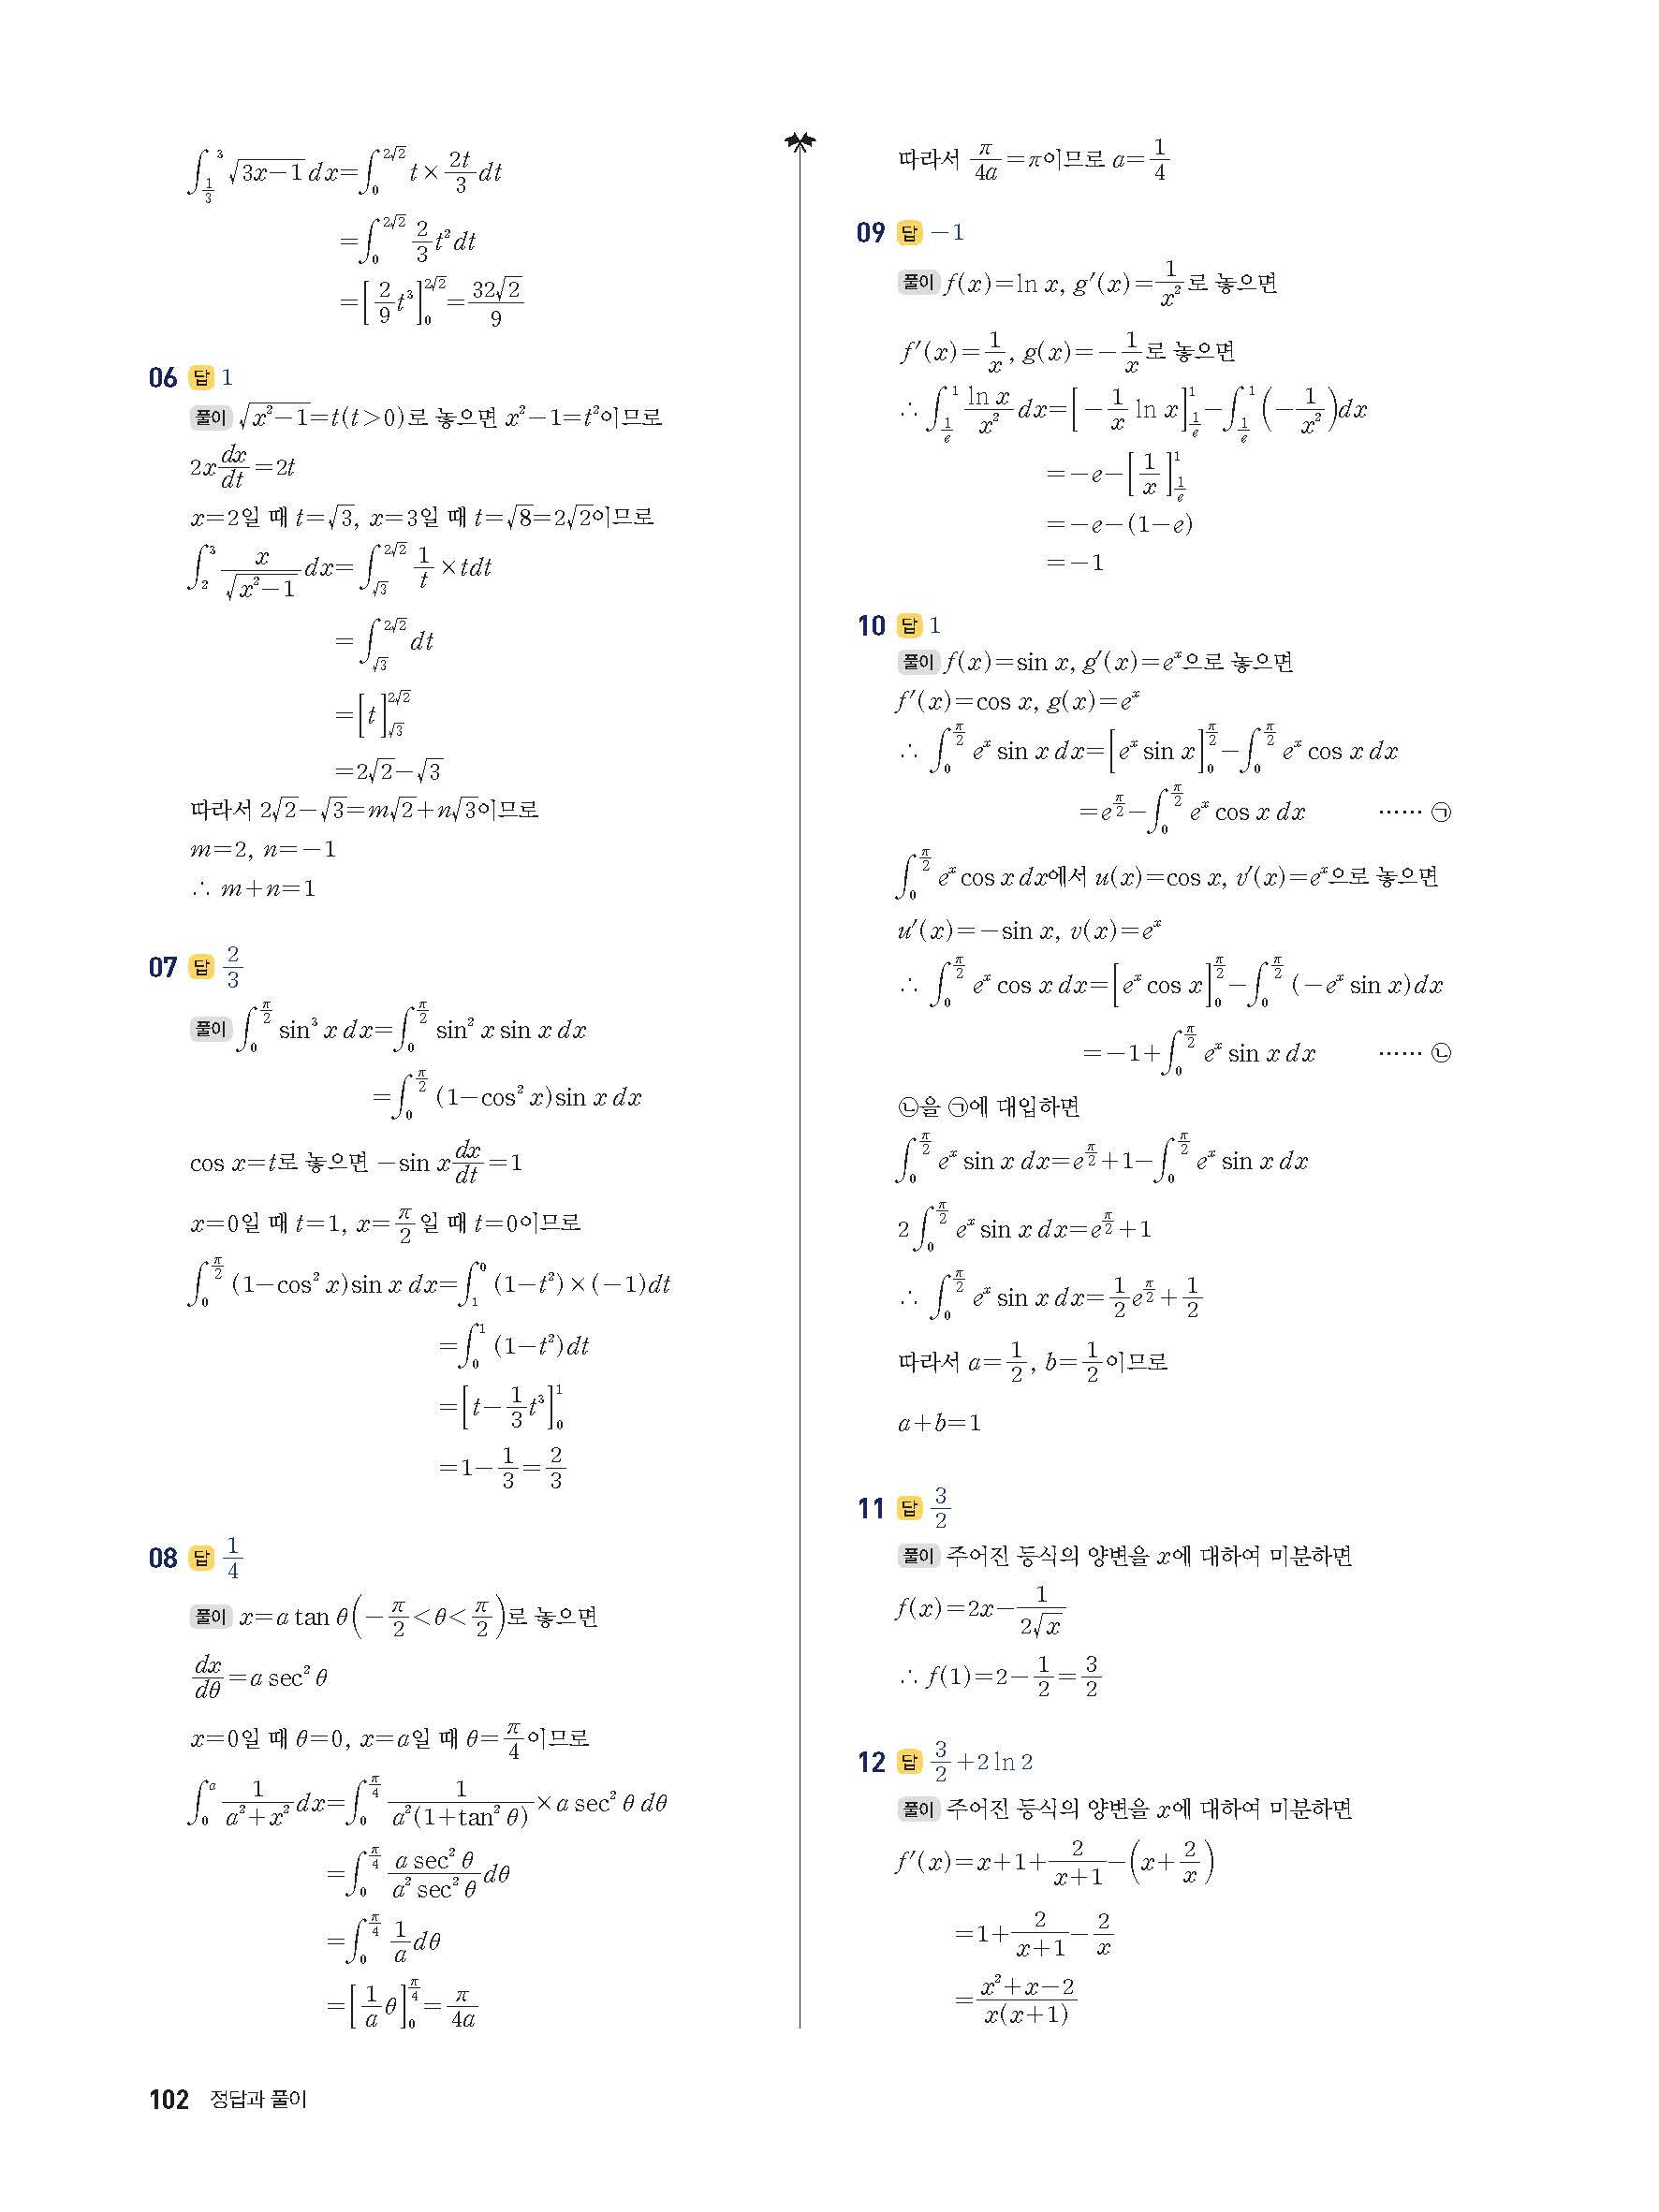 ∫_{1/3}^{3} √(3x−1) dx=∫_{0}^{2√2} t×(2t/3)dt
=∫_{0}^{2√2} (2/3)t²dt
=[(2/9)t³]_{0}^{2√2}=32√2/9
06 답 1
풀이 √(x²−1)=t(t>0)로 놓으면 x²−1=t²이므로
2x(dx/dt)=2t
x=2일 때 t=√3, x=3일 때 t=√8=2√2이므로
∫_{2}^{3} x/√(x²−1) dx=∫_{√3}^{2√2} (1/t)×tdt
=∫_{√3}^{2√2} dt
=[t]_{√3}^{2√2}
=2√2−√3
따라서 2√2−√3=m√2+n√3이므로
m=2, n=−1
∴ m+n=1
07 답 2/3
풀이 ∫_{0}^{π/2} sin³ x dx=∫_{0}^{π/2} sin² x sin x dx
=∫_{0}^{π/2} (1−cos² x)sin x dx
cos x=t로 놓으면 −sin x(dx/dt)=1
x=0일 때 t=1, x=π/2일 때 t=0이므로
∫_{0}^{π/2} (1−cos² x)sin x dx=∫_{1}^{0} (1−t²)×(−1)dt
=∫_{0}^{1} (1−t²)dt
=[t−(1/3)t³]_{0}^{1}
=1−1/3=2/3
08 답 1/4
풀이 x=a tan θ(−π/2<θ<π/2)로 놓으면
dx/dθ=a sec² θ
x=0일 때 θ=0, x=a일 때 θ=π/4이므로
∫_{0}^{a} 1/(a²+x²) dx=∫_{0}^{π/4} 1/(a²(1+tan² θ))×a sec² θ dθ
=∫_{0}^{π/4} (a sec² θ)/(a² sec² θ) dθ
=∫_{0}^{π/4} (1/a)dθ
=[(1/a)θ]_{0}^{π/4}=π/4a
따라서 π/4a=π이므로 a=1/4
09 답 −1
풀이 f(x)=ln x, g′(x)=1/x²로 놓으면
f′(x)=1/x, g(x)=−1/x로 놓으면
∴ ∫_{1/e}^{1} (ln x)/x² dx=[−(1/x) ln x]_{1/e}^{1}−∫_{1/e}^{1} (−1/x²)dx
=−e−[1/x]_{1/e}^{1}
=−e−(1−e)
=−1
10 답 1
풀이 f(x)=sin x, g′(x)=eˣ으로 놓으면
f′(x)=cos x, g(x)=eˣ
∴ ∫_{0}^{π/2} eˣ sin x dx=[eˣ sin x]_{0}^{π/2}−∫_{0}^{π/2} eˣ cos x dx
=e^{π/2}−∫_{0}^{π/2} eˣ cos x dx …… ㉠
∫_{0}^{π/2} eˣ cos x dx에서 u(x)=cos x, v′(x)=eˣ으로 놓으면
u′(x)=−sin x, v(x)=eˣ
∴ ∫_{0}^{π/2} eˣ cos x dx=[eˣ cos x]_{0}^{π/2}−∫_{0}^{π/2} (−eˣ sin x)dx
=−1+∫_{0}^{π/2} eˣ sin x dx …… ㉡
㉡을 ㉠에 대입하면
∫_{0}^{π/2} eˣ sin x dx=e^{π/2}+1−∫_{0}^{π/2} eˣ sin x dx
2∫_{0}^{π/2} eˣ sin x dx=e^{π/2}+1
∴ ∫_{0}^{π/2} eˣ sin x dx=(1/2)e^{π/2}+1/2
따라서 a=1/2, b=1/2이므로
a+b=1
11 답 3/2
풀이 주어진 등식의 양변을 x에 대하여 미분하면
f(x)=2x−1/(2√x)
∴ f(1)=2−1/2=3/2
12 답 3/2+2 ln 2
풀이 주어진 등식의 양변을 x에 대하여 미분하면
f′(x)=x+1+2/(x+1)−(x+2/x)
=1+2/(x+1)−2/x
=(x²+x−2)/(x(x+1))
102 정답과 풀이